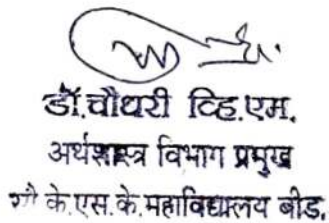 डॉ.चौधरी व्हि.एम.
अर्थशास्त्र विभाग प्रमुख
सौ के.एस.के.महाविद्यालय बीड.